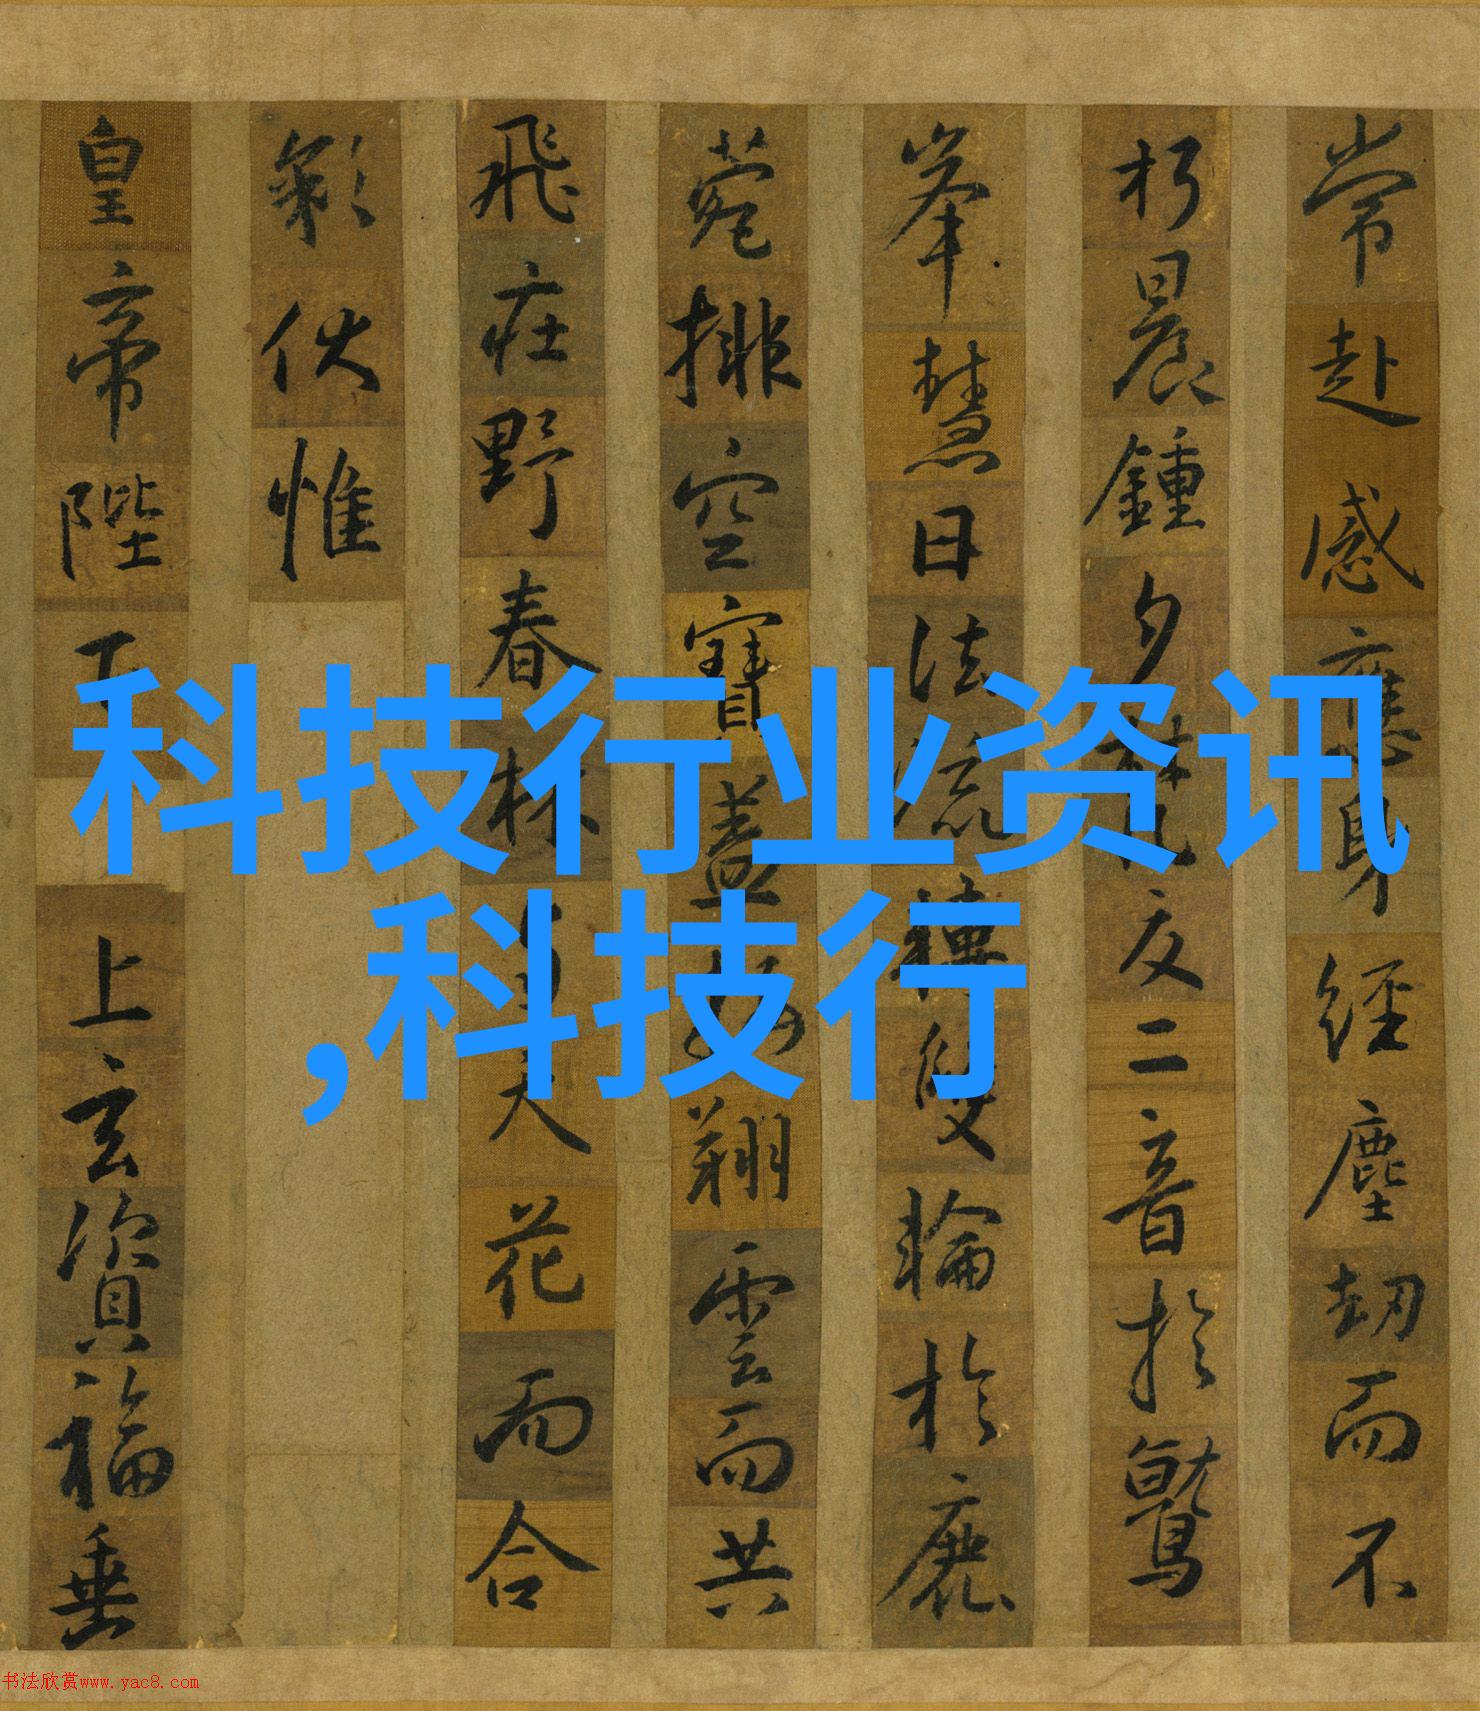 常赴感應身經塵劫而不
朽晨鍾夕梵交二音於鷲
峯慧日法流轉雙輪於鹿
菀排空寶蓋接翔雲而共
飛莊野春林與天花而合
彩伏惟
皇帝陛下上玄資福垂
科技行业资讯
,科技行
书法欣赏www.yac8.com